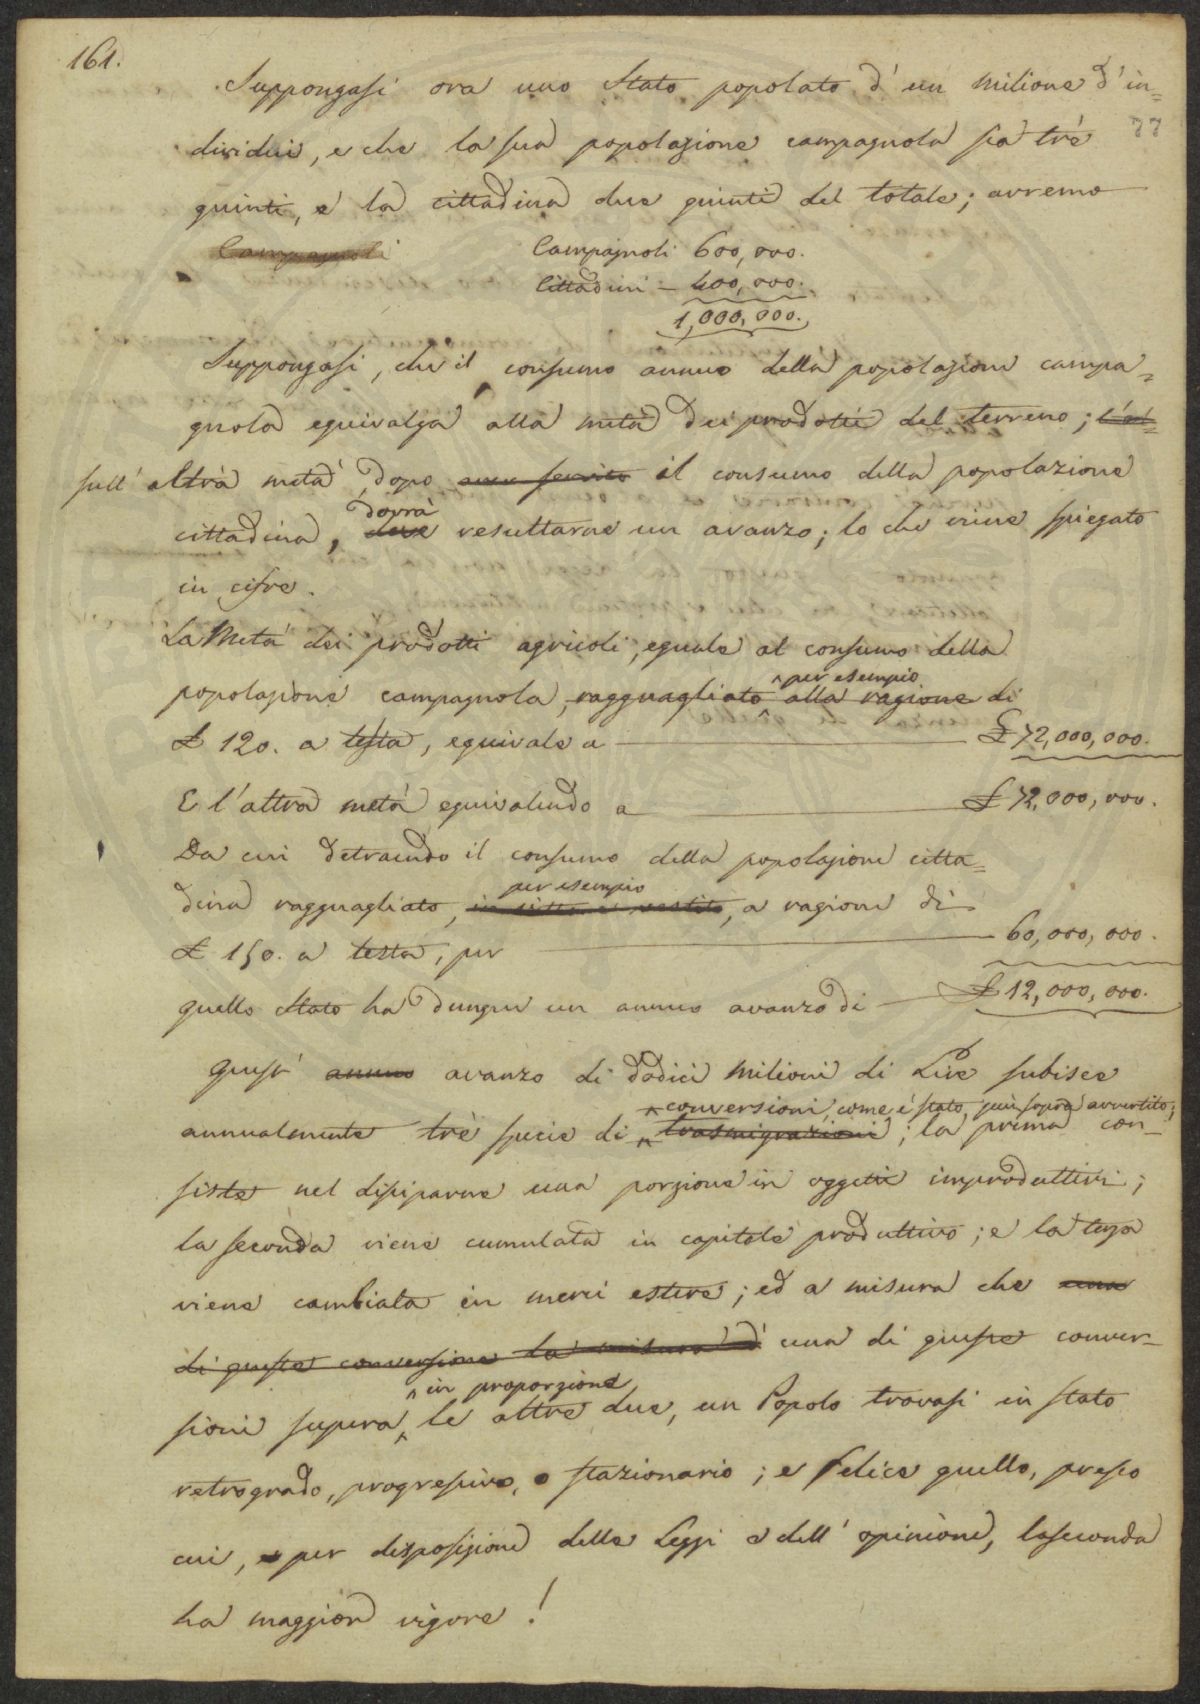 161.
Suppongasi ora uno Stato popolato d'un milione d'in=
77
dividui, e che la sua popolazione campagnola sia tre
quinti, e la cittadina due quinti del totale; avremo
Campagnoli Campagnoli 600,000.
Cittadini — 400,000.
1,000,000.
Suppongasi, che il consumo annuo della popolazione campa=
gnola equivalga alla metà dei prodotti del terreno; l'al=
sull'altra metà, dopo aver servito il consumo della popolazione
dovrà
cittadina, deve resultarne un avanzo; lo che viene spiegato
in cifre.
La Metà dei prodotti agricoli, eguale al consumo della
per esempio
popolazione campagnola, ragguagliato alla ragione di
£ 120. a testa, equivale a £ 72,000,000.
E l'altra metà equivalendo a £ 72,000,000.
Da cui detraendo il consumo della popolazione citta=
per esempio
dina ragguagliato, a ragione di
£ 150. a testa, per 60,000,000.
quello Stato ha dunque un annuo avanzo di £ 12,000,000.
Quest' annuo avanzo di dodici milioni di Lire subisce
conversioni, come è stato più sopra avvertito;
annualmente tre specie di trasmigrazioni; la prima con=
siste nel dissiparne una porzione in oggetti improduttivi;
la seconda viene cumulata in capitale produttivo; e la terza
viene cambiata in merci estere; ed a misura che una
di queste conversione la misura d' una di queste conver=
in proporzione
sioni supera le altre due, un Popolo trovasi in stato
retrogrado, progressivo, o stazionario; e felice quello, presso
cui, per disposizione delle Leggi e dell'opinione, la seconda
ha maggior vigore!